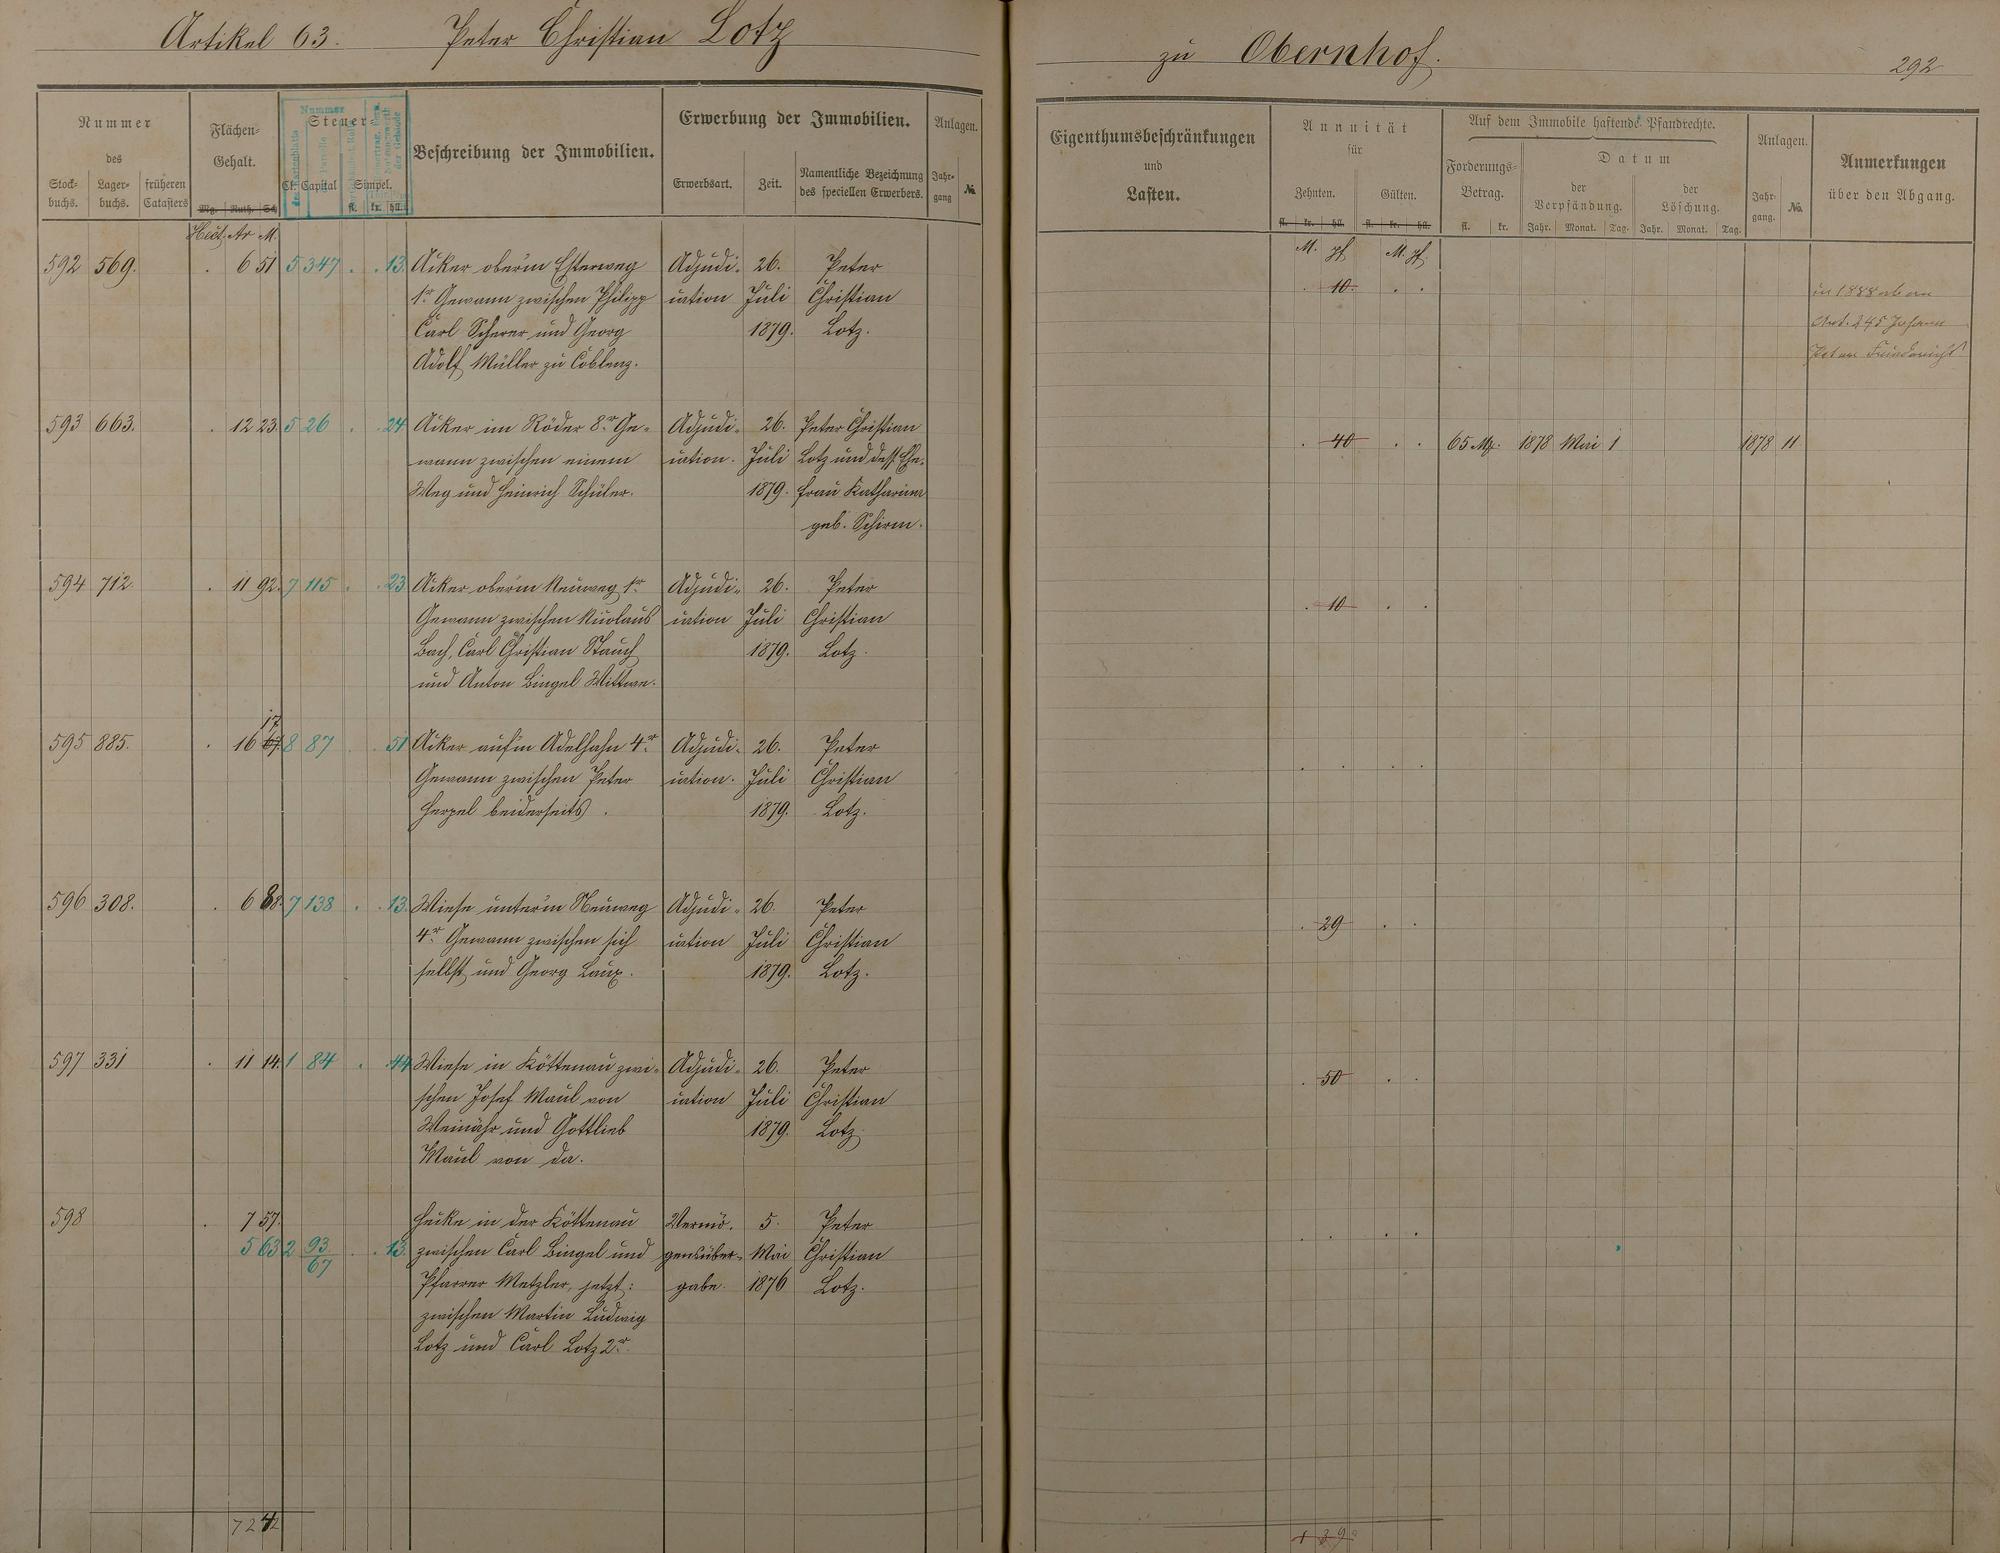 Artikel 63. Peter Christian Lotz
zu Obernhof.
292
Nummer
des
Stock-buchs. Lager-buchs. früheren Catasters
Flächen-Gehalt.
Mg. Ruth. Sch.
Hect. Ar M.
Nummer
Steuer-
Cl. Capital Simpel.
fl. kr. hll.
Beschreibung der Immobilien.
Erwerbung der Immobilien.
Erwerbsart. Zeit. Namentliche Bezeichnung des speciellen Erwerbers.
Anlagen.
Jahr-gang №
Eigenthumsbeschränkungen
und
Lasten.
Annuität
für
Zehnten. Gülten.
fl. kr. hll. fl. kr. hll.
M. pf. M. pf.
Auf dem Immobile haftende Pfandrechte.
Forderungs-Betrag.
fl. kr.
Datum
der Verpfändung. der Löschung.
Jahr. Monat. Tag. Jahr. Monat. Tag.
Anlagen.
Jahr-gang. No.
Anmerkungen
über den Abgang.
592 569. . 6 51 5 347 . . 13. Acker oberm Esterweg Adjudi- 26. Peter
1r. Gewann zwischen Philipp cation Juli Christian
Carl Scherer und Georg 1879. Lotz.
Adolf Müller zu Coblenz.
. 10. . .
in 1888 ab an
Art. 245 Johann
Peter Friedericht
593 663. . 12 23. 5 26 . . 24 Acker im Röder 8r. Ge- Adjudi- 26. Peter Christian
wann zwischen einem cation. Juli Lotz und dess. Ehe-
Weg und Heinrich Schüler. 1879. frau Katharina
geb. Schirm.
. 40 . . 65 Mk. 1878 Mai 1 1878 11
594 712. . 11 92. 7 115 . . 23 Acker oberm Neuweg 1r. Adjudi- 26. Peter
Gewann zwischen Nicolaus cation Juli Christian
Bach, Carl Christian Stauch 1879. Lotz.
und Anton Bingel Wittwe.
. 10 . .
17
595 885. . 16 67. 8 87 . . 51 Acker auf'm Adelhahn 4r. Adjudi- 26. Peter
Gewann zwischen Peter cation. Juli Christian
Herpel beiderseits. 1879. Lotz.
596 308. . 6 88. 7 138 . . 13. Wiese unterm Neuweg Adjudi- 26. Peter
4r. Gewann zwischen sich cation Juli Christian
selbst und Georg Laux. 1879. Lotz.
. 29 . .
597 331 . 11 14. 1 84 . . 44 Wiese in Köttenau zwi- Adjudi- 26. Peter
schen Josef Maul von cation Juli Christian
Weinähr und Gottlieb 1879. Lotz.
Maul von da.
. 50 . .
598 . 7 57. Hecke in der Köttenau Vermö- 5. Peter
5 63 2 93/67 . . 13. zwischen Carl Bingel und gensüber- Mai Christian
Pfarrer Metzler, jetzt: gabe. 1876 Lotz.
zwischen Martin Ludwig
Lotz und Carl Lotz 2r.
72 42
1 39